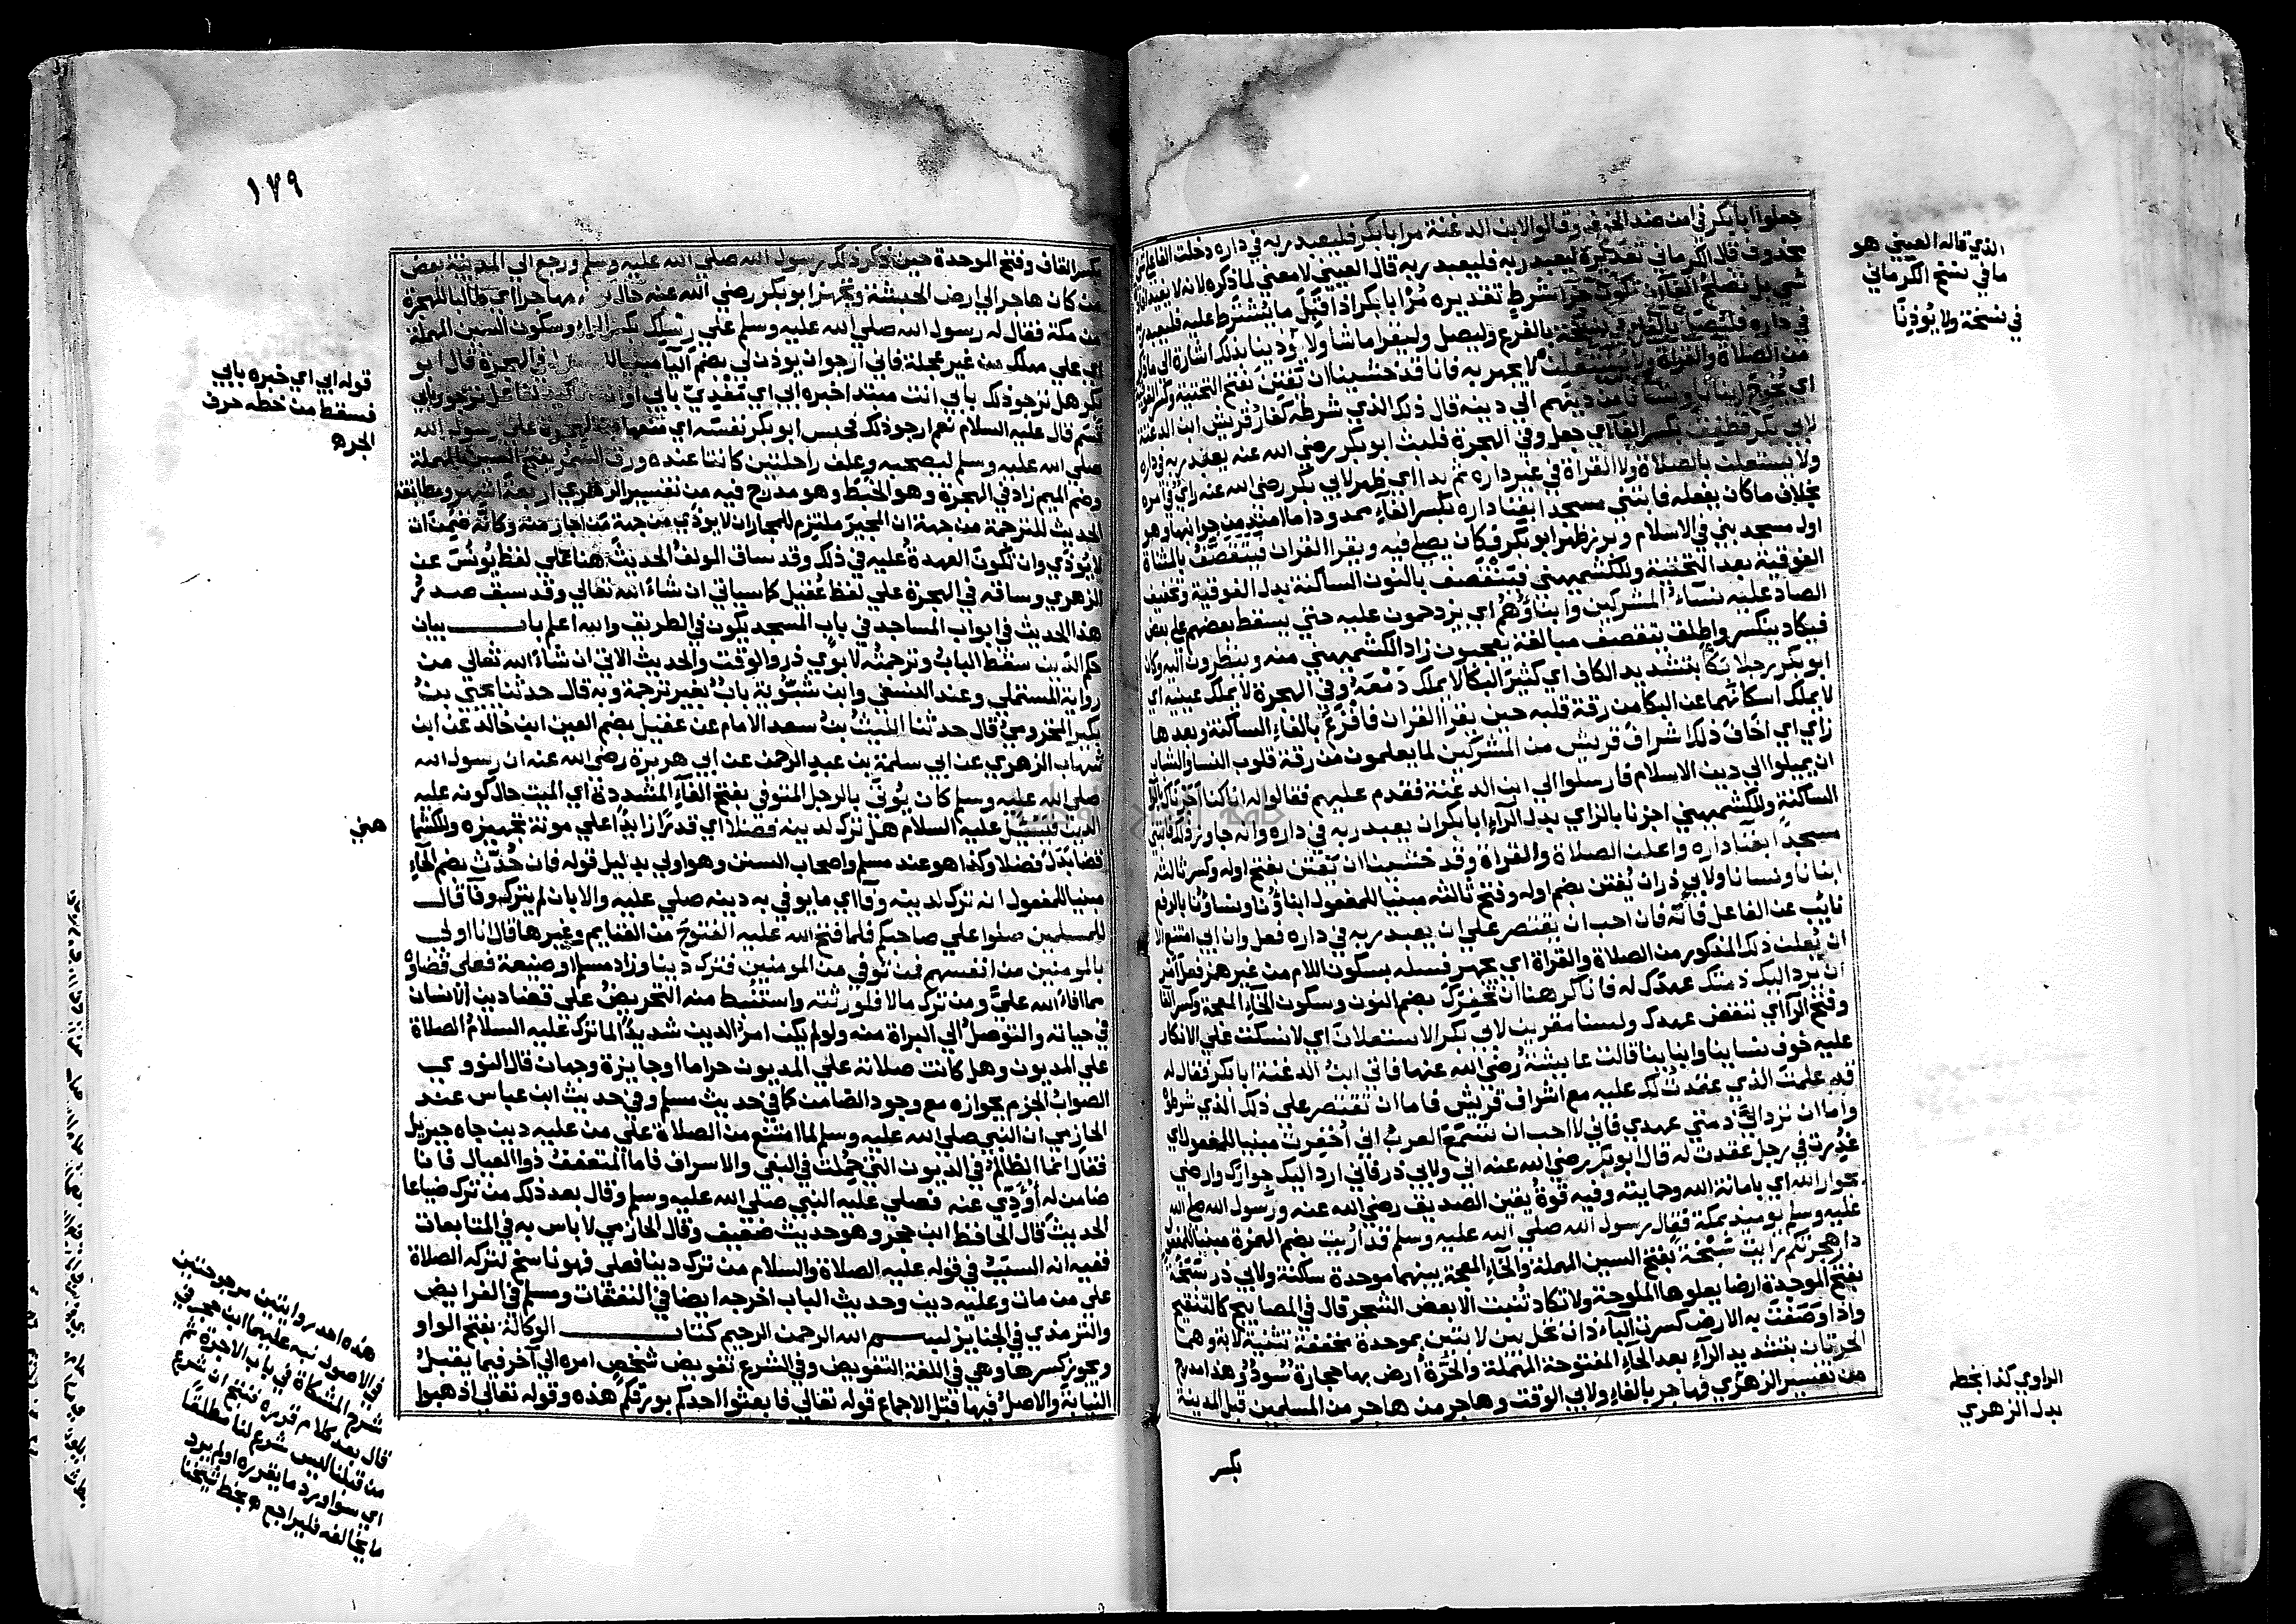 جعلوا ابا بكر في امن ضد الخوف وقالوا لابن الدغنة مر ابا بكر فليعبد ربه في داره دخلت الفا علي شي
محذوف قال الكرماني تقديره ليعبد ربه فليعبد ربه قال العيني لا معني لما ذكره لانه لا يفيد
شي بل تصلح الفا ان تكون جزا شرط تقديره مر ابا بكر اذا قبل ما نشترط عليه فليعبد ربه
في داره فليصل بالفا وليقرا ما شا ولا يؤذينا بذلك اشارة الي ما ذكر
من الصلاة والقراة ولا يستعلن به فانا قد خشينا ان يفتن بفتح التحتية وكسر الفوقية
اي يخرج ابنانا ونسانا من دينهم الي دينه قال ذلك الذي شرطه كفار قريش ابن الدغنة
لابي بكر فطفق بكسر الفا اي جعل وفي الهجرة فلبث ابو بكر رضي الله عنه يعبد ربه في داره
ولا يستعلن بالصلاة ولا القراة في غير داره ثم بدا اي ظهر لابي بكر رضي الله عنه راي في امره
بخلاف ما كان يفعله فابتني مسجدا بفنا داره بكسر الفآء ممدودا ما امتد من جوانبها وهو
اول مسجد بني في الاسلام وبرز ظهر ابو بكر فكان يصلي فيه ويقرا القران فيتقصف بالمثناة
الفوقية بعد التحتية وللكشميهني فينقصف بالنون الساكنة بدل الفوقية وتخفيف
الصاد عليه نسآء المشركين وابناؤهم اي يزدحمون عليه حتي يسقط بعضهم علي بعض
فيكاد ينكسر واطلق يتقصف مبالغة يعجبون زاد الكشميهني منه وينظرون اليه وكان
ابو بكر رجلا بكآ بتشديد الكاف اي كثير البكا لا يملك دمعه وفي الهجرة لا يملك عينيه اي
لا يملك اسكانهما عن البكا من رقة قلبه حين يقرا القران فافزع بالفاء الساكنة وبعدها
زاي اي اخاف ذلك اشراف قريش من المشركين لما يعلمون من رقة قلوب النسا والشباب
ان يميلوا الي دين الاسلام فارسلوا الي ابن الدغنة فقدم عليهم فقالوا له انا كنا اجرنا بالرا
الساكنة وللكشميهني اجزنا بالزاي بدل الرآء ابا بكر ان يعبد ربه في داره وانه جاوز ذلك فابتني
مسجدا بفنا داره واعلن الصلاة والقراة وقد خشينا ان يفتن بفتح اوله وكسر ثالثه
ابنانا ونسانا ولابي ذر ان يفتن بضم اوله وفتح ثالثه مبنيا للمفعول ابناؤنا ونساؤنا بالرفع
نايب عن الفاعل فاته فان احب ان يقتصر علي ان يعبد ربه في داره فعل وان ابي امتنع الا
ان يعلن ذلك المذكور من الصلاة والقراة اي يجهر فسله بسكون اللام من غير همز فعل امر
ان يرد اليك ذمتك عهدك له فانا كرهنا ان نخفرك بضم النون وسكون الخآء المعجمة وكسر الفا
وفتح الرآ اي ننقض عهدك ولسنا مقرين لابي بكر الاستعلان اي لا نسكت علي الانكار
عليه خوف نساينا وابناينا قالت عايشة رضي الله عنها فاتي ابن الدغنة ابا بكر فقال له
قد علمت الذي عقدت لك عليه مع اشراف قريش فاما ان تقتصر علي ذلك الذي شرطوه
واما ان ترد الي ذمتي عهدي فاني لا احب ان تسمع العرب اني اخفرت مبنيا للمفعول اي
غدرت في رجل عقدت له قال ابو بكر رضي الله عنه اني ولابي ذر فاني ارد اليك جوارك وارضي
بجوار الله اي بامانة الله وحمايته وفيه قوة يقين الصديق رضي الله عنه ورسول الله صلي الله
عليه وسلم يوميذ بمكة فقال رسول الله صلي الله عليه وسلم قد اريت بضم الهمزة مبنيا للمفعول
دار هجرتكم رايت سبخة بفتح السين المهملة والخآء المعجمة بينهما موحدة ساكنة ولابي ذر سبخة
بفتح الموحدة ارضا يعلوها الملوحة ولا تكاد تنبت الا بعض الشجر قال في المصابيح كالتنقيح
واذا وصفت به الارض كسرت البآء ذات نخل بين لابتين بموحدة مخففة تثنية لابة وهما
الحرتان بتشديد الرآء بعد الحآء المفتوحة المهملة والحرة ارض بها حجارة سود وهذا مدرج
من تفسير الزهري فهاجر بالفاء ولابي الوقت وهاجر من هاجر من المسلمين قبل المدينة
بكسر
الذي قاله العيني هو
ما في نسخ الكرماني
في نسخة ولا يؤذنا
الراوي كذا بخطه
بدل الزهري
١٧٩
بكسر القاف وفتح الموحدة حين ذكر ذلك رسول الله صلي الله عليه وسلم ورجع الي المدينة بعض
من كان هاجر الي ارض الحبشة وتجهز ابو بكر رضي الله عنه حال مهاجرا اي طالبا للهجرة
من مكة فقال له رسول الله صلي الله عليه وسلم علي رسلك بكسر الراء وسكون السين المهملة
اي علي مهلك من غير عجلة فاني ارجو ان يوذن لي بضم اليا مبنيا في الهجرة قال ابو
بكر هل ترجو ذلك بابي انت مبتدا خبره ابي اي مفدي بابي لفاعل ترجو وبابي
قسم قال عليه السلام نعم ارجو ذلك فحبس ابو بكر نفسه اي منعها من الهجرة علي رسول الله
صلي الله عليه وسلم ليصحبه وعلف راحلتين كانتا عنده ورق السمر بفتح السين المهملة
وضم الميم زاد في الهجرة وهو الخبط وهو مدرج فيه من تفسير الزهري اربعة اشهر ومطابقة
الحديث للترجمة من جهة ان المجير ملتزم للمجار ان لا يوذي من جهة من اجار منه وكانه ضمن ان
لا يؤذي وان تكون العهدة عليه في ذلك وقد ساق المولف الحديث هنا علي لفظ يونس عن
الزهري وساقه في الهجرة علي لفظ عقيل كما سياتي ان شاء الله تعالي وقد سبق صدر
هذا الحديث في ابواب المساجد في باب المسجد يكون في الطريق والله اعلم باب بيان
حكم الدين سقط الباب وترجمته لابوي ذر والوقت والحديث الاتي ان شاء الله تعالي من
رواية المستملي وعند النسفي وابن شبويه باب بغير ترجمة وبه قال حدثنا يحيي بن
بكير المخزومي قال حدثنا الليث بن سعد الامام عن عقيل بضم العين ابن خالد عن ابن
شهاب الزهري عن ابي سلمة بن عبد الرحمن عن ابي هريرة رضي الله عنه ان رسول الله
صلي الله عليه وسلم كان يؤتي بالرجل المتوفي بفتح الفآء المشددة اي الميت حال كونه عليه
الدين فيسئل عليه السلام هل ترك لدينه فضلا اي قدرا زايدا علي مونة تجهيزه وللكشما
قضا بدل فضلا وكذا هو عند مسلم واصحاب السنن وهو اولي بدليل قوله فان حدث بضم الحآء
مبنيا للمفعول انه ترك لدينه وفآ اي ما يوفي به دينه صلي عليه والا بان لم يترك وفآ قال
للمسلمين صلوا علي صاحبكم فلما فتح الله عليه الفتوح من الغنايم وغيرها قال انا اولي
بالمومنين من انفسهم فمن توفي من المومنين فترك دينا وزاد مسلم او ضيعة فعلي قضاوه
مما افاء الله علي ومن ترك مالا فلورثته واستنبط منه التحريض علي قضا دين الانسان
في حياته والتوصل الي البراة منه ولو لم يكن امر الدين شديدا لما ترك عليه السلام الصلاة
علي المديون وهل كانت صلاته علي المديون حراما او جايزة وجهان قال النووي
الصواب الجزم بجوازه مع وجود الضامن كما في حديث مسلم وفي حديث ابن عباس عند
الحازمي ان النبي صلي الله عليه وسلم لما امتنع من الصلاة علي من عليه دين جاه جبريل
فقال انما الظالم في الديون التي حملت في البغي والاسراف فاما المتعفف ذو العيال فانا
ضامن له اؤدي عنه فصلي عليه النبي صلي الله عليه وسلم وقال بعد ذلك من ترك ضياعا
الحديث قال الحافظ ابن حجر وهو حديث ضعيف وقال الحازمي لا باس به في المتابعات
ففيه انه السبب في قوله عليه الصلاة والسلام من ترك دينا فعلي فهو ناسخ لتركه الصلاة
علي من مات وعليه دين وحديث الباب اخرجه ايضا في النفقات ومسلم في الفرايض
والترمذي في الجنايز بسم الله الرحمن الرحيم كتاب الوكالة بفتح الواو
ويجوز كسرها وهي في اللغة التفويض وفي الشرع تفويض شخص امره الي آخر فيما يقبل
النيابة والاصل فيها قبل الاجماع قوله تعالي فابعثوا احدكم بورقكم هذه وقوله تعالي اذهبوا
قوله ابي اي خبره بابي
فسقط من خطه حرف
الجر
هني
هذه احد روايتين مرجوحتين
في الاصول نبه عليهما ابن حجر في
شرح المشكاة في باب الاجرة ثم
قال بعد كلام قرره فتنبه ان شرع
من قبلنا ليس شرع لنا مطلقا
اي سوا ورد ما يقرره او لم يرد
ما يخالفه فليراجع بخط شيخنا